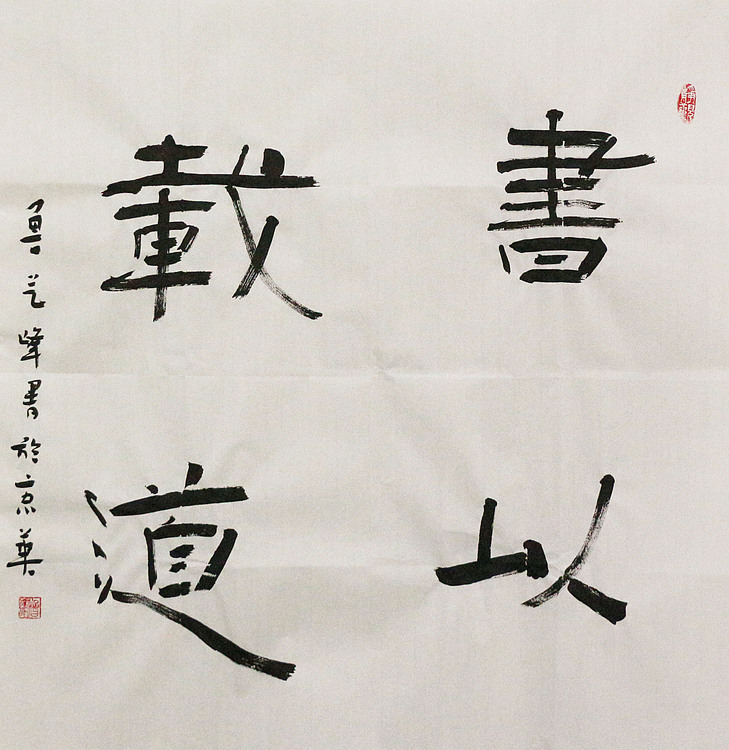 書以
載道
峰書於京華